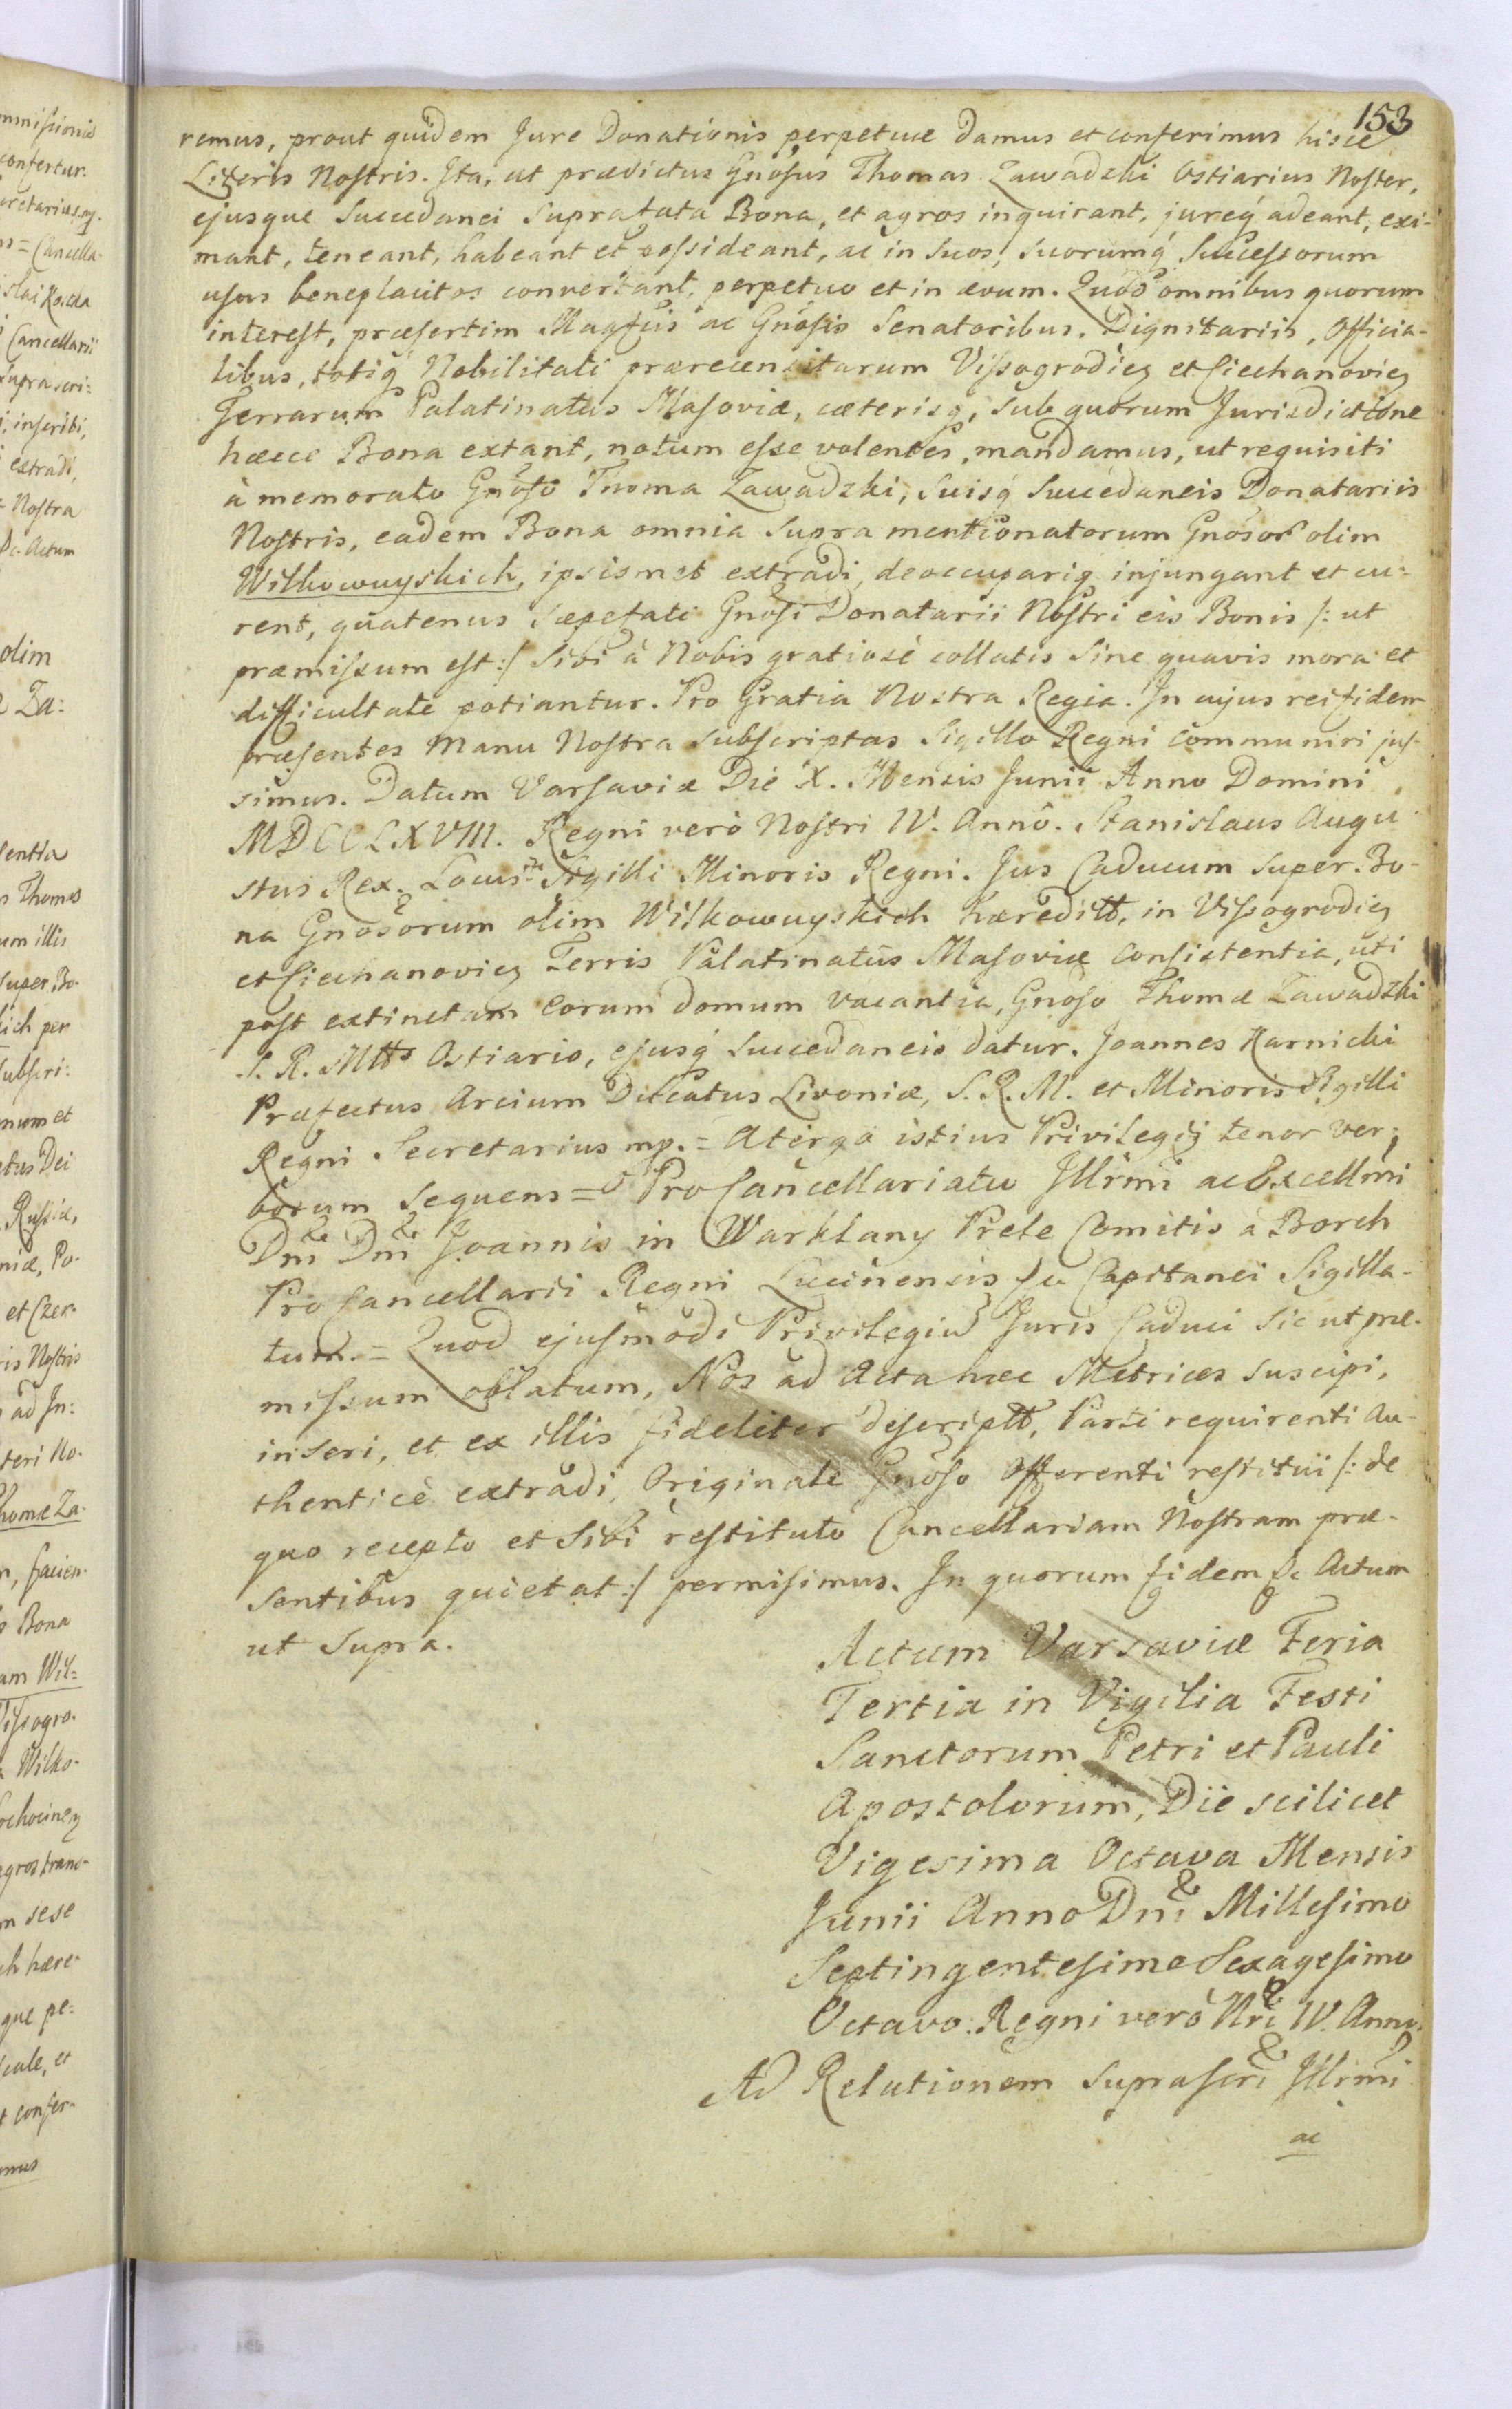 153
remus, prout quidem Jure Donationis perpetuæ damus et conferimus hisce
Literis Nostris. Ita, ut prædictus Gnosus Thomas Zawadzki Ostiarius Noster,
ejusque Succedanei Suprafata Bona, et agros inquirant, jureq́ adeant, exi-
mant, teneant, habeant et possideant, ac in suos, suorumq́ Successorum
usus beneplacitos convertant, perpetuo et in ævum. Quod omnibus quorum
interest, præsertim Magfcis ac Gnosis Senatoribus. Dignitariis, Officia-
libus, totiq́ Nobilitati prærecensitarum Vissogrodien et Ciechanovien
Terrarum Palatinatus Masoviæ, cæterisq́, sub quorum Jurisdictione
hæcce Bona extant, notum esse volentes, mandamus, ut requisiti
à memorato Gnoso Thoma Zawadzki, suisq́ Succedaneis Donatariis
Nostris, eadem Bona omnia supra mentionatorum Gnosor olim
Wilkowuyskich, ipsismet extradi, deoccupariq injungant et cu:
rent, quatenus sæpefati Gnosi Donatarii Nostri eis Bonis /: ut
præmissum est :/ Sibi à Nobis gratiosè collatis sine quavis mora et
difficultate potiantur. Pro Gratia Nostra Regia. In cujus rei fidem
præsentes Manu Nostra subscriptas Sigillo Regni communiri jus-
simus. Datum Varsaviæ Die X. Mensis Junii Anno Domini
MDCCLXVIII. Regni verò Nostri IV. Annô. Stanislaus Augu
stus Rex. Locus Sigilli Minoris Regni. Jus Caducum super Bo-
na Gnosorum olim Wilkowuyskich hæreditt, in Vissogrodien
et Ciechanovien Terris Palatinatûs Masoviæ consistentia, uti
post extinctam eorum domum vacantia, Gnoso Thomæ Zawadzki
S. R. Mttis Ostiario, ejusq́ succedaneis datur. Joannes Karnicki
Præfectus Arcium Ducatus Livoniæ, S. R. M. et Minoris Sigilli
Regni Secretarius mp. = A tergo istius Privilegij tenor ver:
borum sequens = Pro Cancellariatu Illrmi ac Excellmi
Dni Dni Joannis in Warklany Prele Comitis à Borch
Pro Cancellarii Regni Lucinensis &c Capitanei Sigilla-
tum. = Quod ejusmodi Privilegiũ Juris Caduci sic ut præ-
missum oblatum, Nos ad Acta hæc Metrices suscipi,
inseri, et ex illis fideliter descriptt, Parti requirenti Au-
thenticè extradi, Originale Gnoso Offerenti restitui /: de
quo recepto et sibi restituto Cancellariam Nostram præ-
sentibus quietat :/ permisimus. In quorum fidem &c Actum
ut Supra.
Actum Varsaviæ Feria
Tertia in Vigilia Festi
Sanctorum Petri et Pauli
Apostolorum, Die scilicet
Vigesima Octava Mensis
Junii Anno Dni Millesimo
Septingentesimo Sexagesimo
Octavo. Regni verò Nri IV. Anno.
Ad Relationem suprascri Illrmi
ac